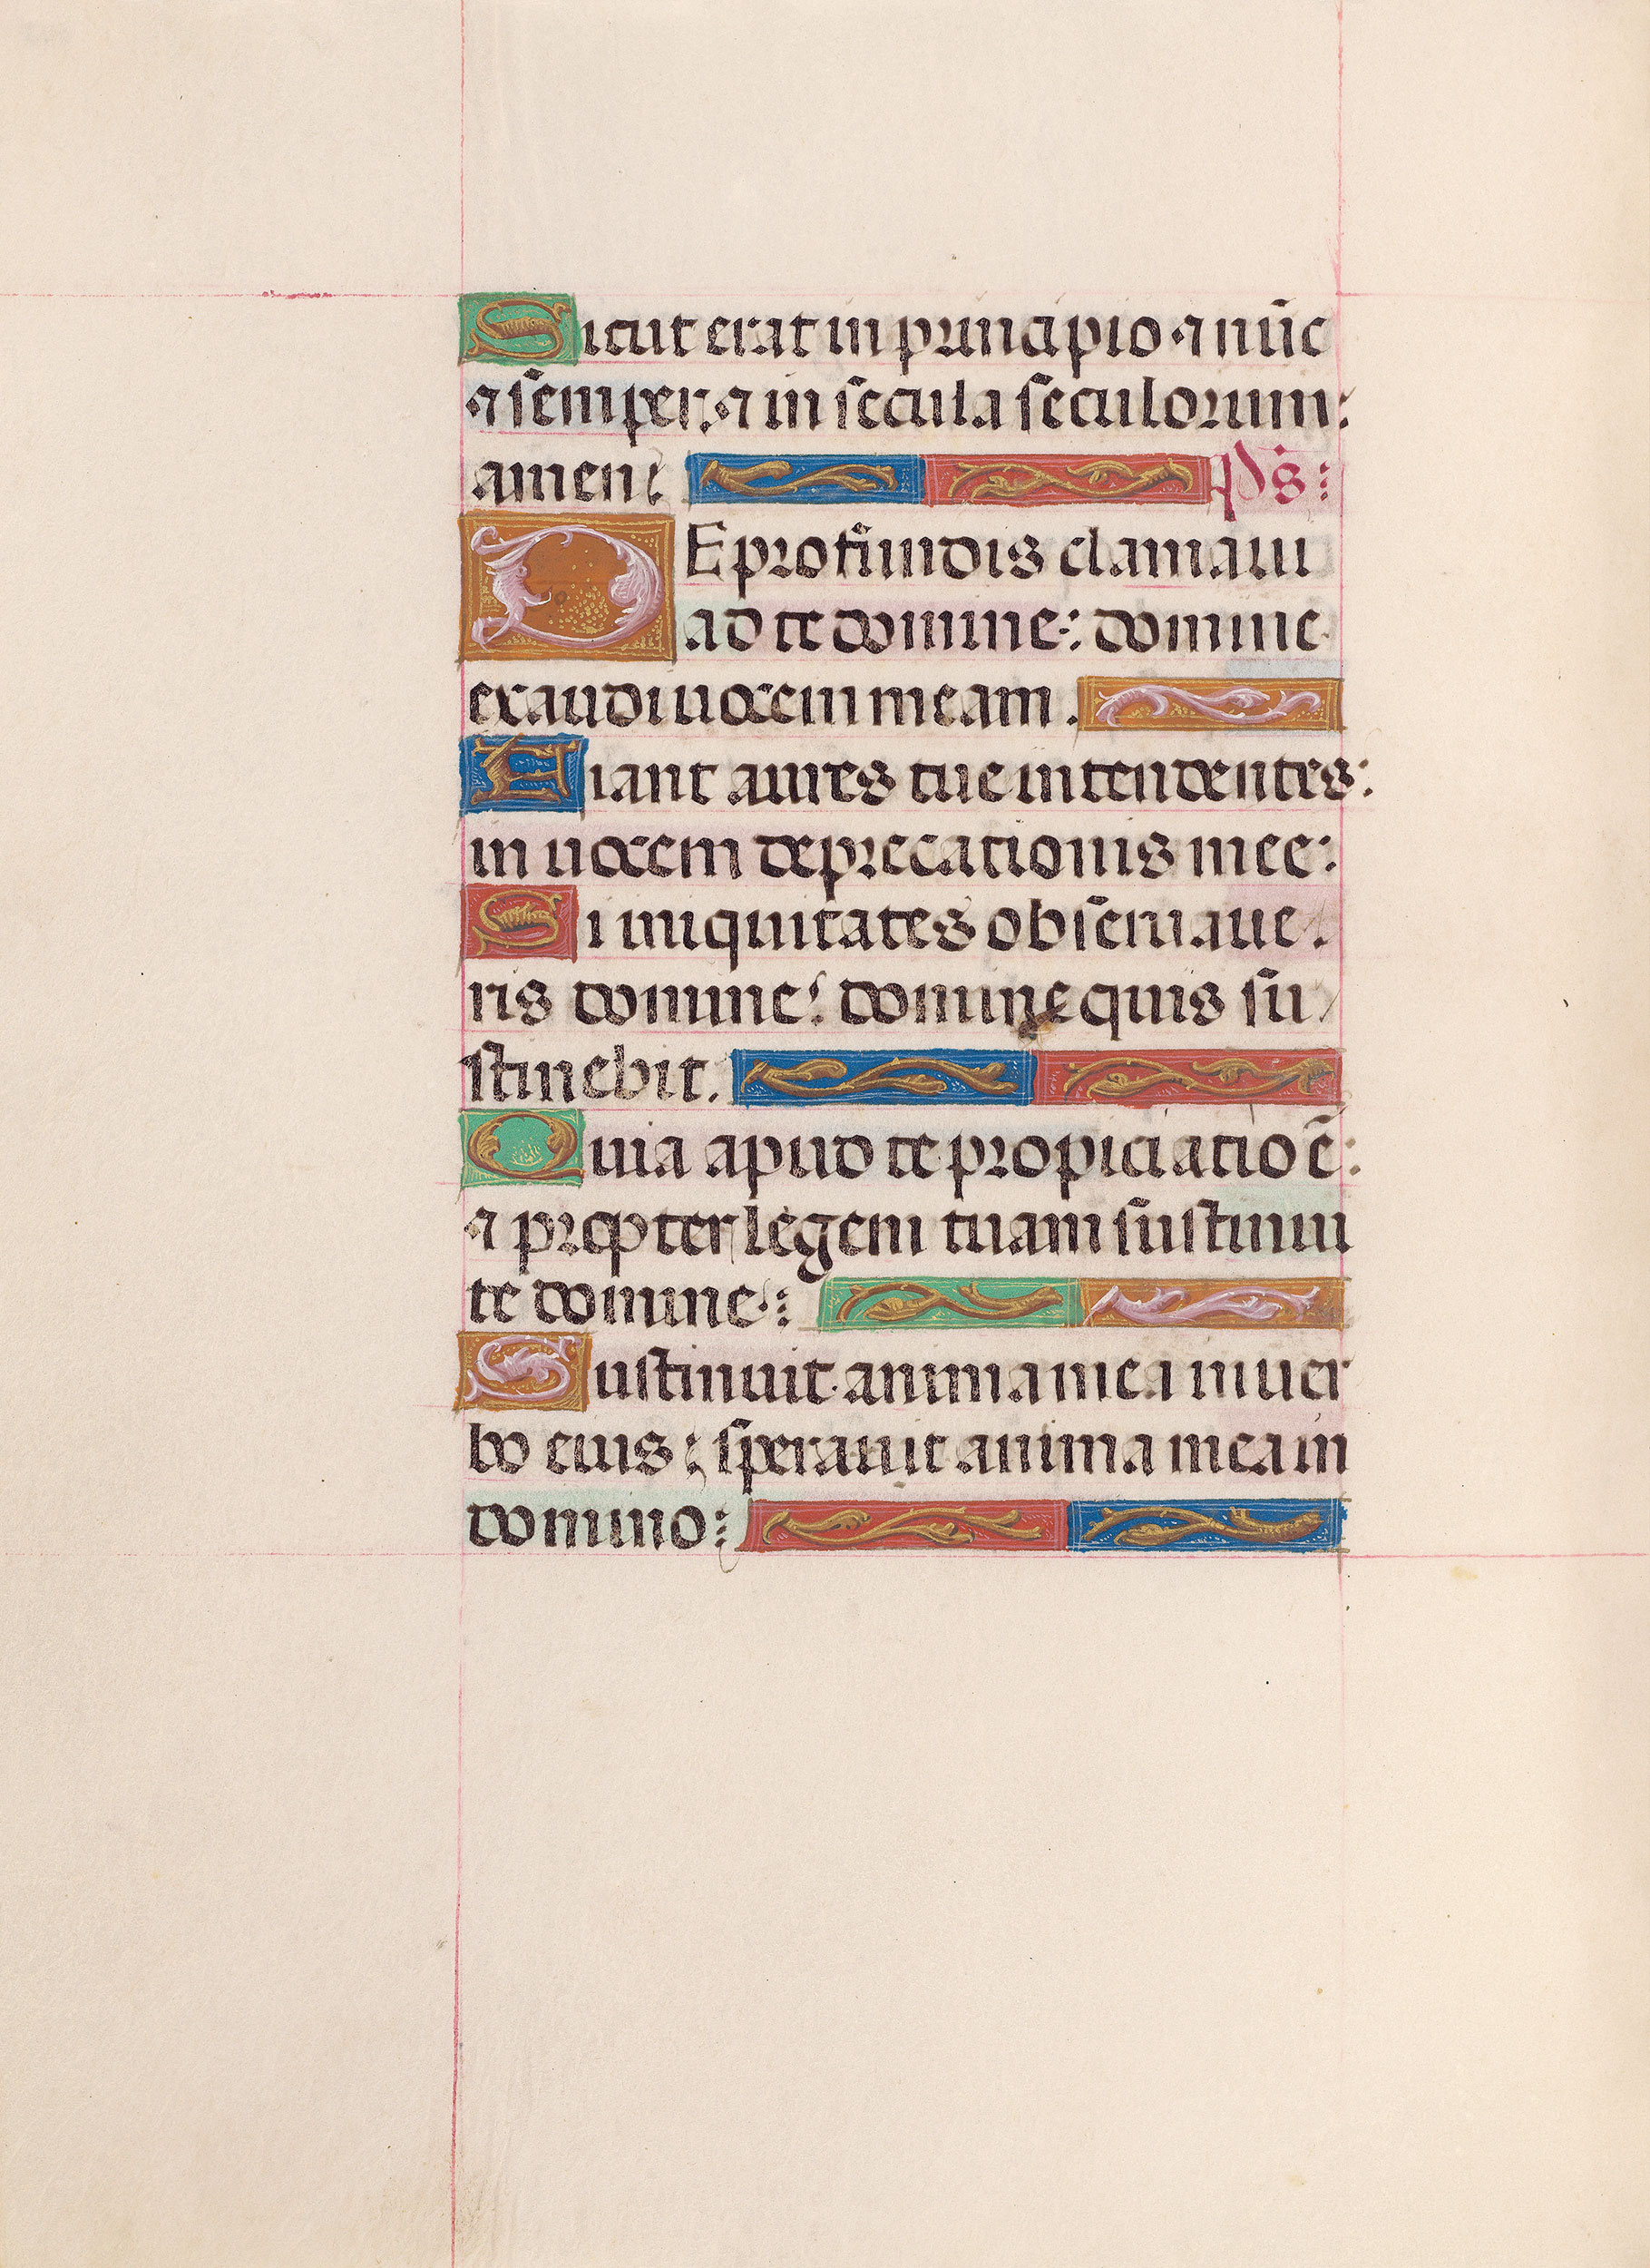 Sicut erat in principio · ⁊ nūc
⁊ semper · ⁊ in secula seculorum :
amen : Ps :
DE profundis clamaui
ad te domine : domine
exaudi uocem meam .
Fiant aures tue intendentes :
in uocem deprecationis mee :
Si iniquitates obseruaue
ris domine : domine quis su
stinebit .
Quia apud te propiciatio ē :
⁊ propter legem tuam sustinui
te domine :
Sustinuit anima mea in uer
bo eius : sperauit anima mea in
domino :